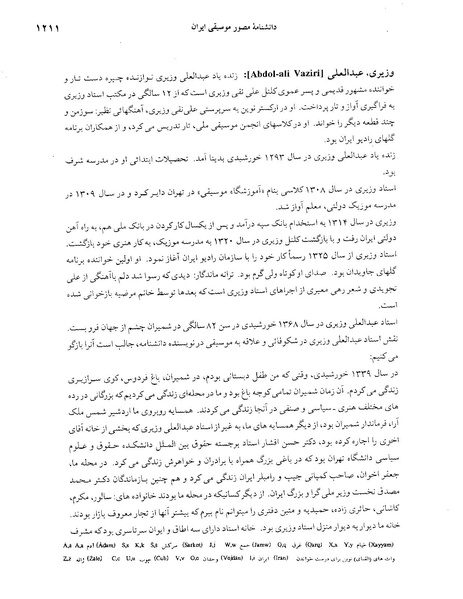 دانشنامهٔ مصور موسیقی ایران
۱۲۱۱
وزیری، عبدالعلی [Abdol-ali Vaziri]: زنده یاد عبدالعلی وزیری نوازنده چیره دست تار و
خواننده مشهور قدیمی و پسر عموی کلنل علی نقی وزیری است که از ۱۲ سالگی در مکتب استاد وزیری
به فراگیری آواز و تار پرداخت. او در ارکستر نوین به سرپرستی علی نقی وزیری، آهنگهائی نظیر: سوزمن و
چند قطعه دیگر را خواند. او در کلاسهای انجمن موسیقی ملی، تار تدریس می کرد، و از همکاران برنامه
گلهای رادیو ایران بود.
زنده یاد عبدالعلی وزیری در سال ۱۲۹۳ خورشیدی بدینا آمد. تحصیلات ابتدائی او در مدرسه شرف
بود.
استاد وزیری در سال ۱۳۰۸ کلاسی بنام «آموزشگاه موسیقی» در تهران دایر کرد و در سال ۱۳۰۹ در
مدرسه موزیک دولتی، معلم آواز شد.
وزیری در سال ۱۳۱۴ به استخدام بانک سپه درآمد و پس از یکسال کار کردن در بانک ملی هم، به راه آهن
دولتی ایران رفت و با بازگشت کلنل وزیری در سال ۱۳۲۰ به مدرسه موزیک، به کار هنری خود بازگشت.
استاد وزیری از سال ۱۳۲۵ رسماً کار خود را با سازمان رادیو ایران آغاز نمود. او اولین خواننده برنامه
گلهای جاویدان بود. صدای او کوتاه ولی گرم بود. ترانه ماندگار: دیدی که رسوا شد دلم با آهنگی از علی
تجویدی و شعر رهی معیری از اجراهای استاد وزیری است که بعدها توسط خانم مرضیه بازخوانی شده
است.
استاد عبدالعلی وزیری در سال ۱۳۶۸ خورشیدی در سن ۸۲ سالگی در شمیران چشم از جهان فرو بست.
نقش استاد عبدالعلی وزیری در شکوفائی و علاقه به موسیقی در نویسنده دانشنامه، جالب است آنرا بازگو
می کنیم:
در سال ۱۳۳۹ خورشیدی، وقتی که من طفل دبستانی بودم، در شمیران، باغ فردوس، کوی سرازیری
زندگی می کردم. آن زمان شمیران تمامی کوچه باغ بود و ما در محله‌ای زندگی می کردیم که بزرگانی در رده
های مختلف هنری ـ سیاسی و صنفی در آنجا زندگی می کردند. همسایه روبروی ما اردشیر شمس ملک
آراء فرماندار شمیران بود، از دیگر همسایه های ما، به غیر از استاد عبدالعلی وزیری که بخشی از خانه آقای
اخوی را اجاره کرده بود، دکتر حسن افشار استاد برجسته حقوق بین الملل دانشکده حقوق و علوم
سیاسی دانشگاه تهران بود که در باغی بزرگ همراه با برادران و خواهرش زندگی می کرد. در محله ما،
جعفر اخوان، صاحب کمپانی جیپ و رامبلر ایران زندگی می کرد و هم چنین بازماندگان دکتر محمد
مصدق نخست وزیر ملی گرا و بزرگ ایران. از دیگر کسانیکه در محله ما بودند خانواده های: سالور، مکرم،
کاشانی، حائری زاده، حمیدیه و متین دفتری را میتوانم نام ببرم که بیشتر آنها از تجار معروف بازار بودند.
خانه ما دیوار به دیوار منزل استاد وزیری بود. خانه استاد دارای سه اطاق و ایوان سرتاسری بود که مشرف
A,a آدم (Âdam) S,s K,k سرکش (Sarkeš) J,j جمع (Jamw) W,w G,q غرق (Qarq) X,x Y,y خیام (Xayyam)
Z,z ژاله (Žale) C,c U,u چوب (Čub) V,v O,o وجدان (Vojdan) I,i ایران (Iran) وات های (الفبای) نوین برای درست خواندن